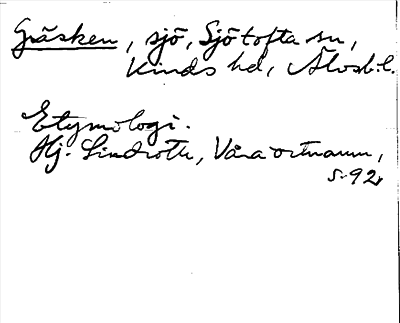 Gräsken, sjö, Sjötofta sn,
Kinds hd, Älvsb. l.
Etymologi.
Hj. Lindroth, Våra ortnamn,
s. 92,